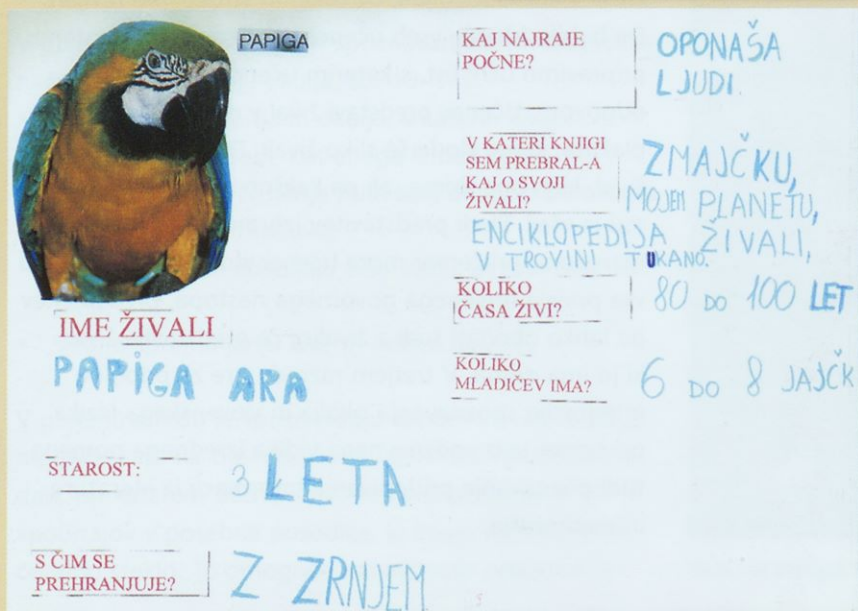 PAPIGA
IME ŽIVALI
PAPIGA ARA
STAROST:
3 LETA
S ČIM SE
PREHRANJUJE?
Z ZRNJEM
KAJ NAJRAJE
POČNE?
OPONAŠA
LJUDI.
V KATERI KNJIGI
SEM PREBRAL-A
KAJ O SVOJI
ŽIVALI?
ZMAJČKU,
MOJEM PLANETU,
ENCIKLOPEDIJA ŽIVALI,
V TROVINI TUKANO.
KOLIKO
ČASA ŽIVI?
80 DO 100 LET
KOLIKO
MLADIČEV IMA?
6 DO 8 JAJČK